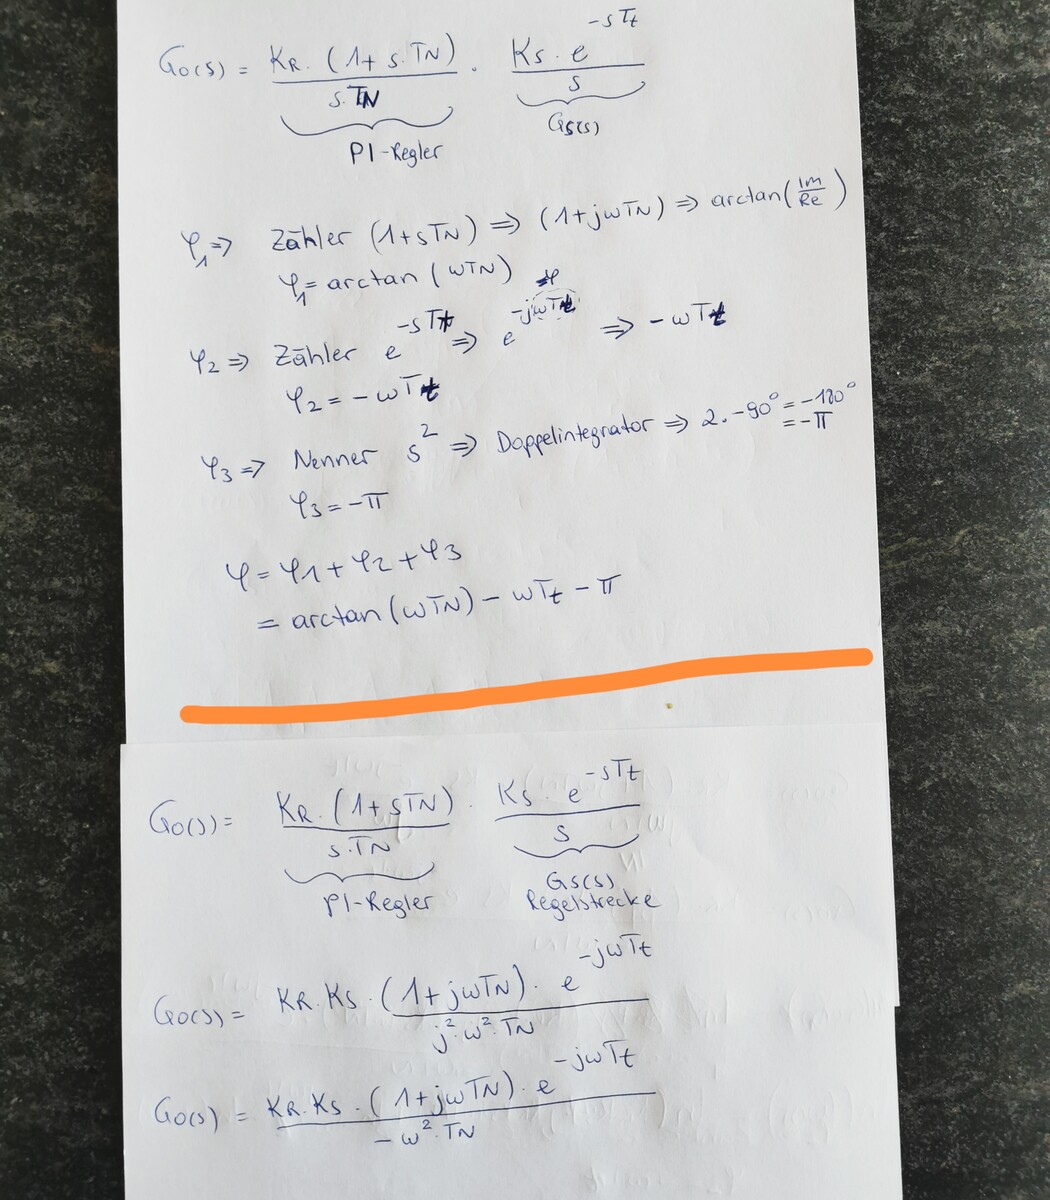 Go(s) = KR · (1 + s·TN) / s·TN · Ks · e^(-sTt) / s
PI-Regler Gs(s)
φ1 ⇒ Zähler (1+sTN) ⇒ (1+jωTN) ⇒ arctan(Im/Re)
φ1 = arctan (ωTN)
φ2 ⇒ Zähler e^(-sTt) ⇒ e^(-jωTt) ⇒ -ωTt
φ2 = -ωTt
φ3 ⇒ Nenner s² ⇒ Doppelintegrator ⇒ 2·-90° = -180°
= -π
φ3 = -π
φ = φ1 + φ2 + φ3
= arctan(ωTN) - ωTt - π
Go(s) = KR · (1+sTN) / s·TN · Ks · e^(-sTt) / s
PI-Regler Gs(s)
Regelstrecke
Go(s) = KR·KS · (1+jωTN) · e^(-jωTt) / j²·ω²·TN
Go(s) = KR·KS · (1+jωTN) · e^(-jωTt) / -ω²·TN